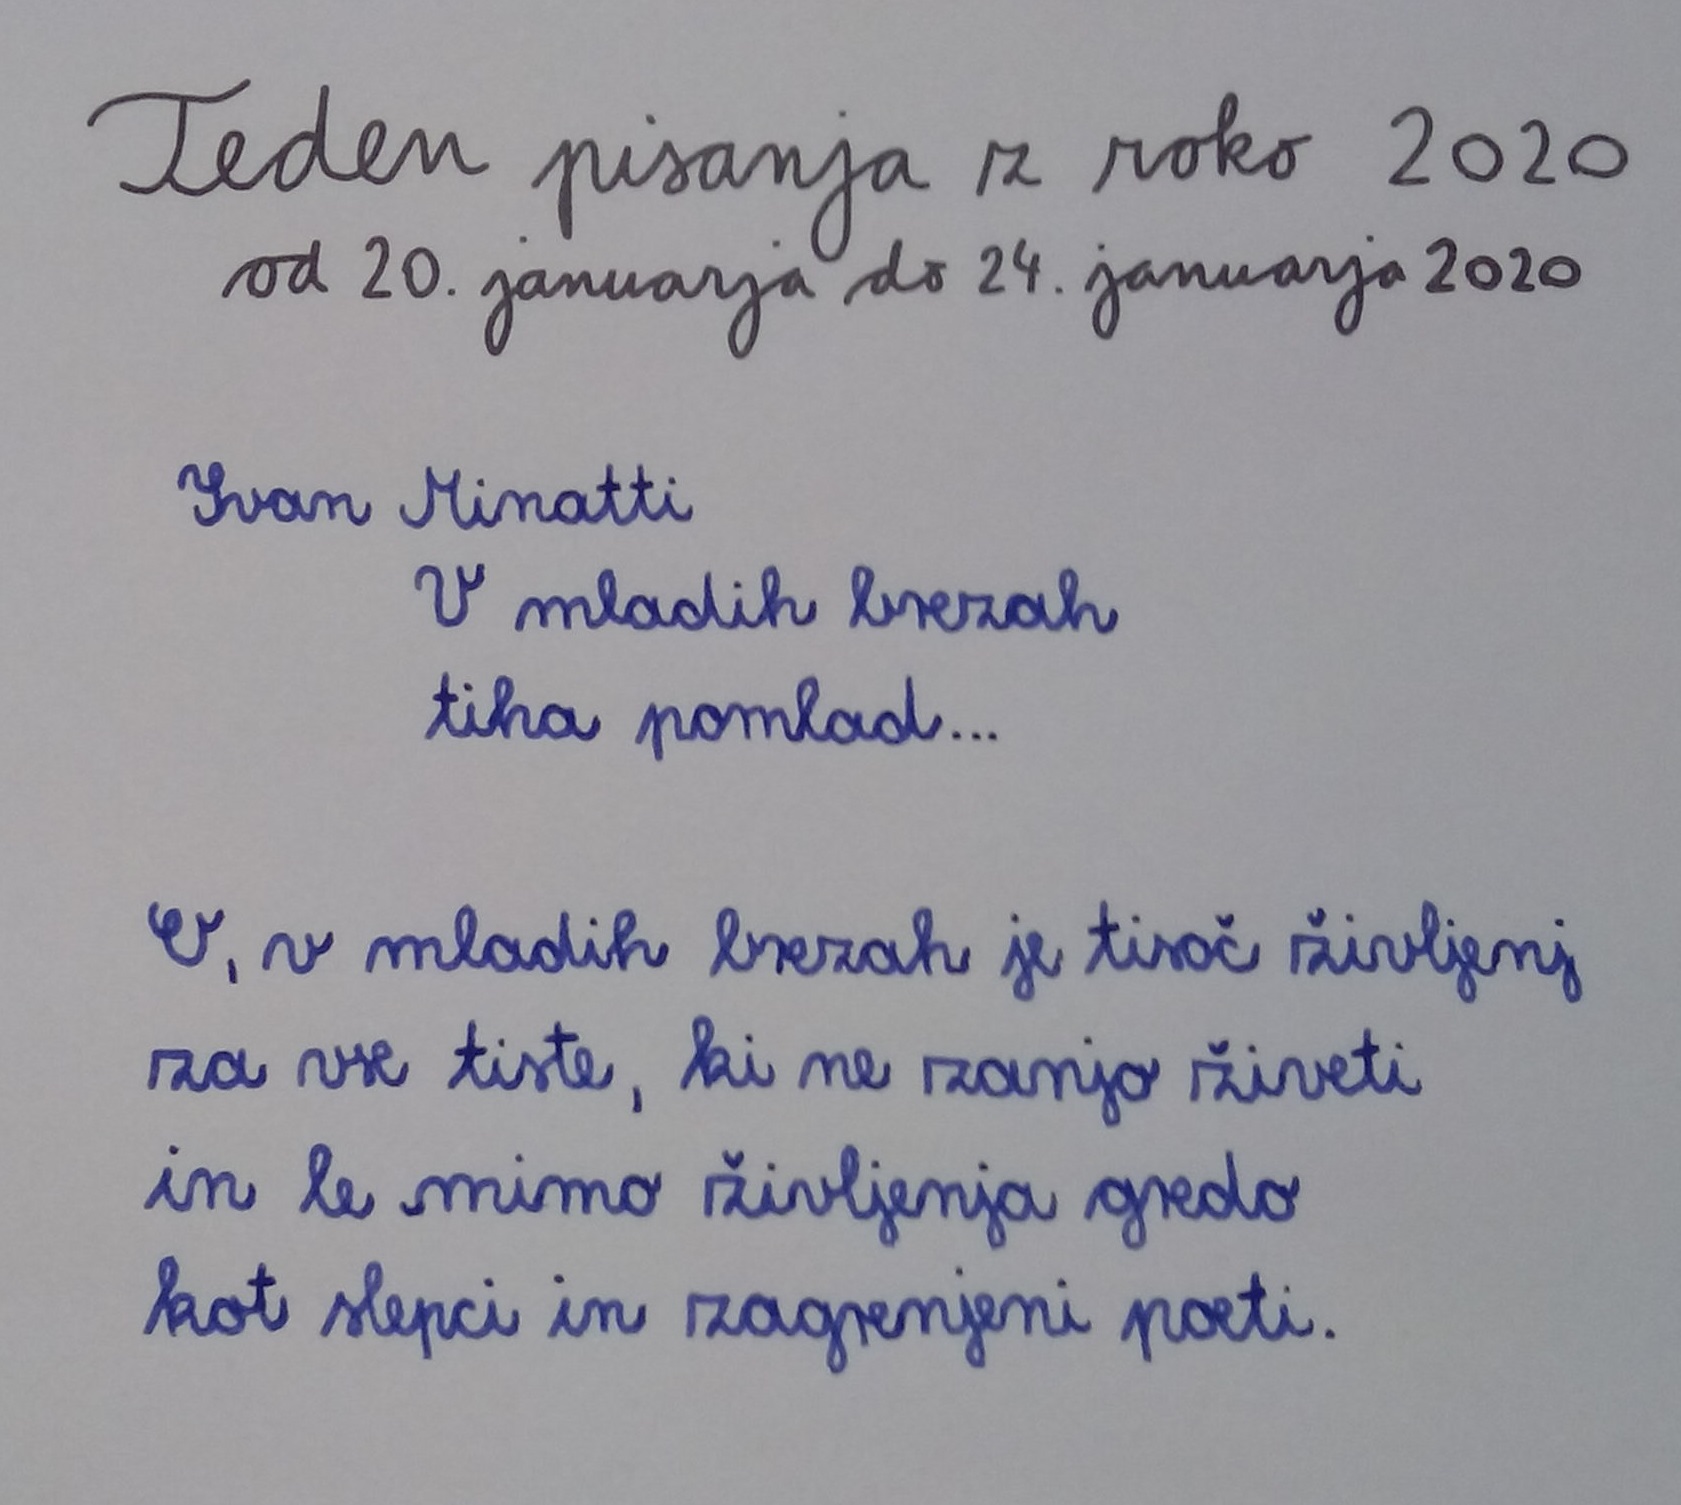 Teden pisanja z roko 2020
od 20. januarja do 24. januarja 2020
Ivan Minatti
V mladih brezah
tiha pomlad...
V, v mladih brezah je tisoč življenj
za vse tiste, ki ne zanjo živeti
in le mimo življenja gredo
kot slepci in zagrenjeni poeti.